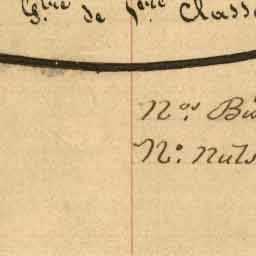 G.tre de 1ère Classe
N.os Bu
N.o Nuls